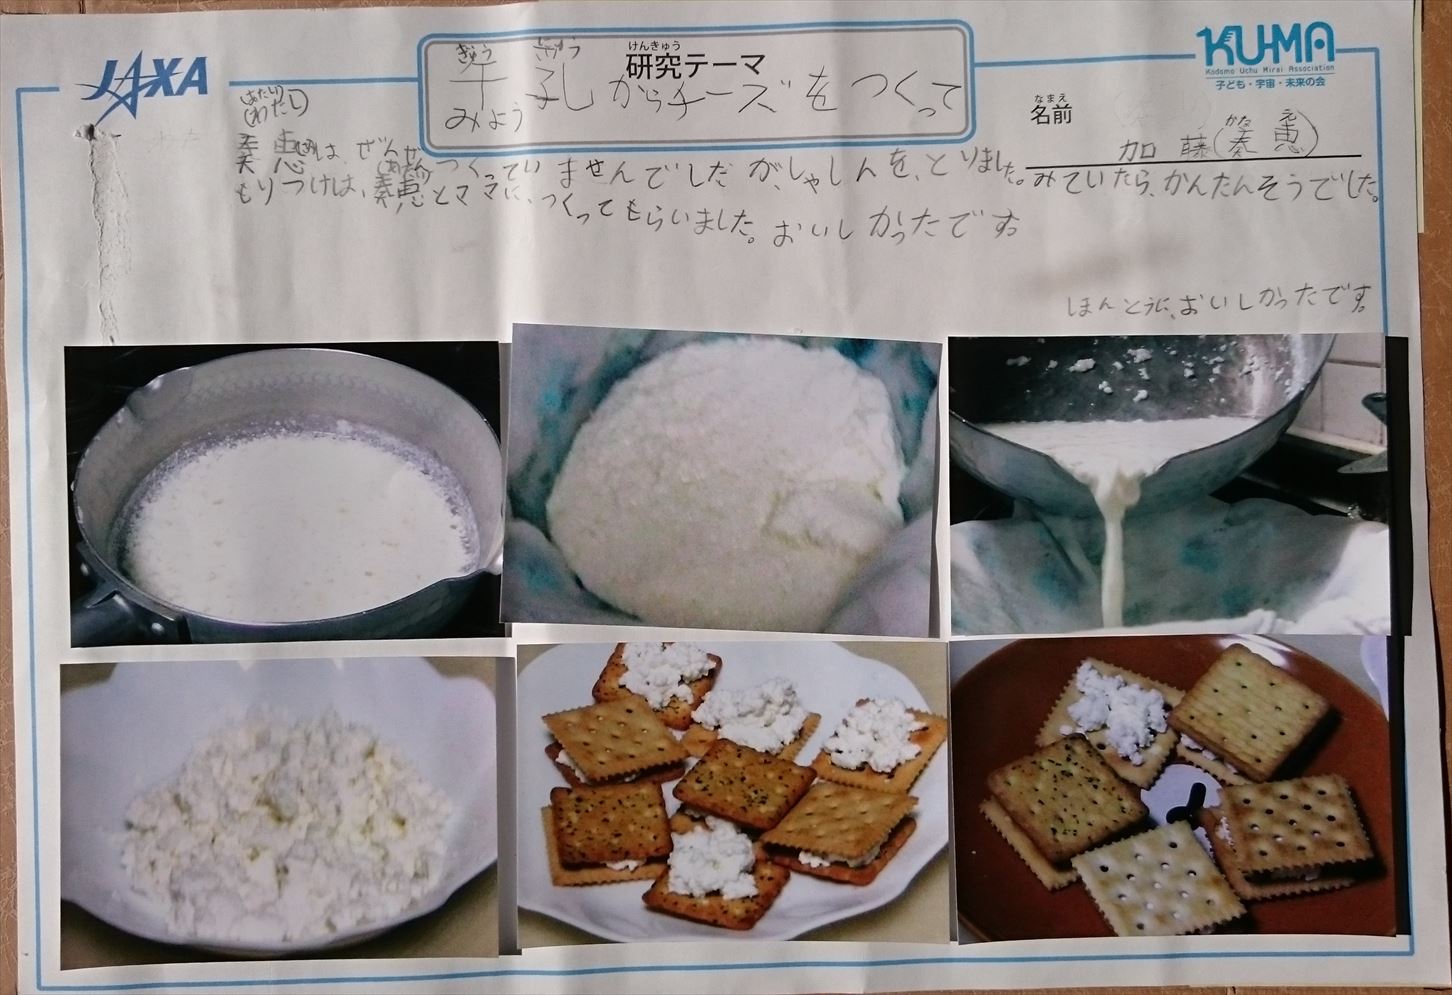 JAXA
けんきゅう
研究テーマ
ぎゅう にゅう
牛乳からチーズをつくって
みよう
KU-MA
Kodomo Uchu Mirai Association
子ども・宇宙・未来の会
なまえ
名前
かな え
加藤(奏恵)
(わたし)
奏恵は、ぜんぜんつくっていませんでしたが、しゃしんを、とりました。みていたら、かんたんそうでした。
もりつけは、奏恵とママに、つくってもらいました。おいしかったです。
ほんとうに、おいしかったです。